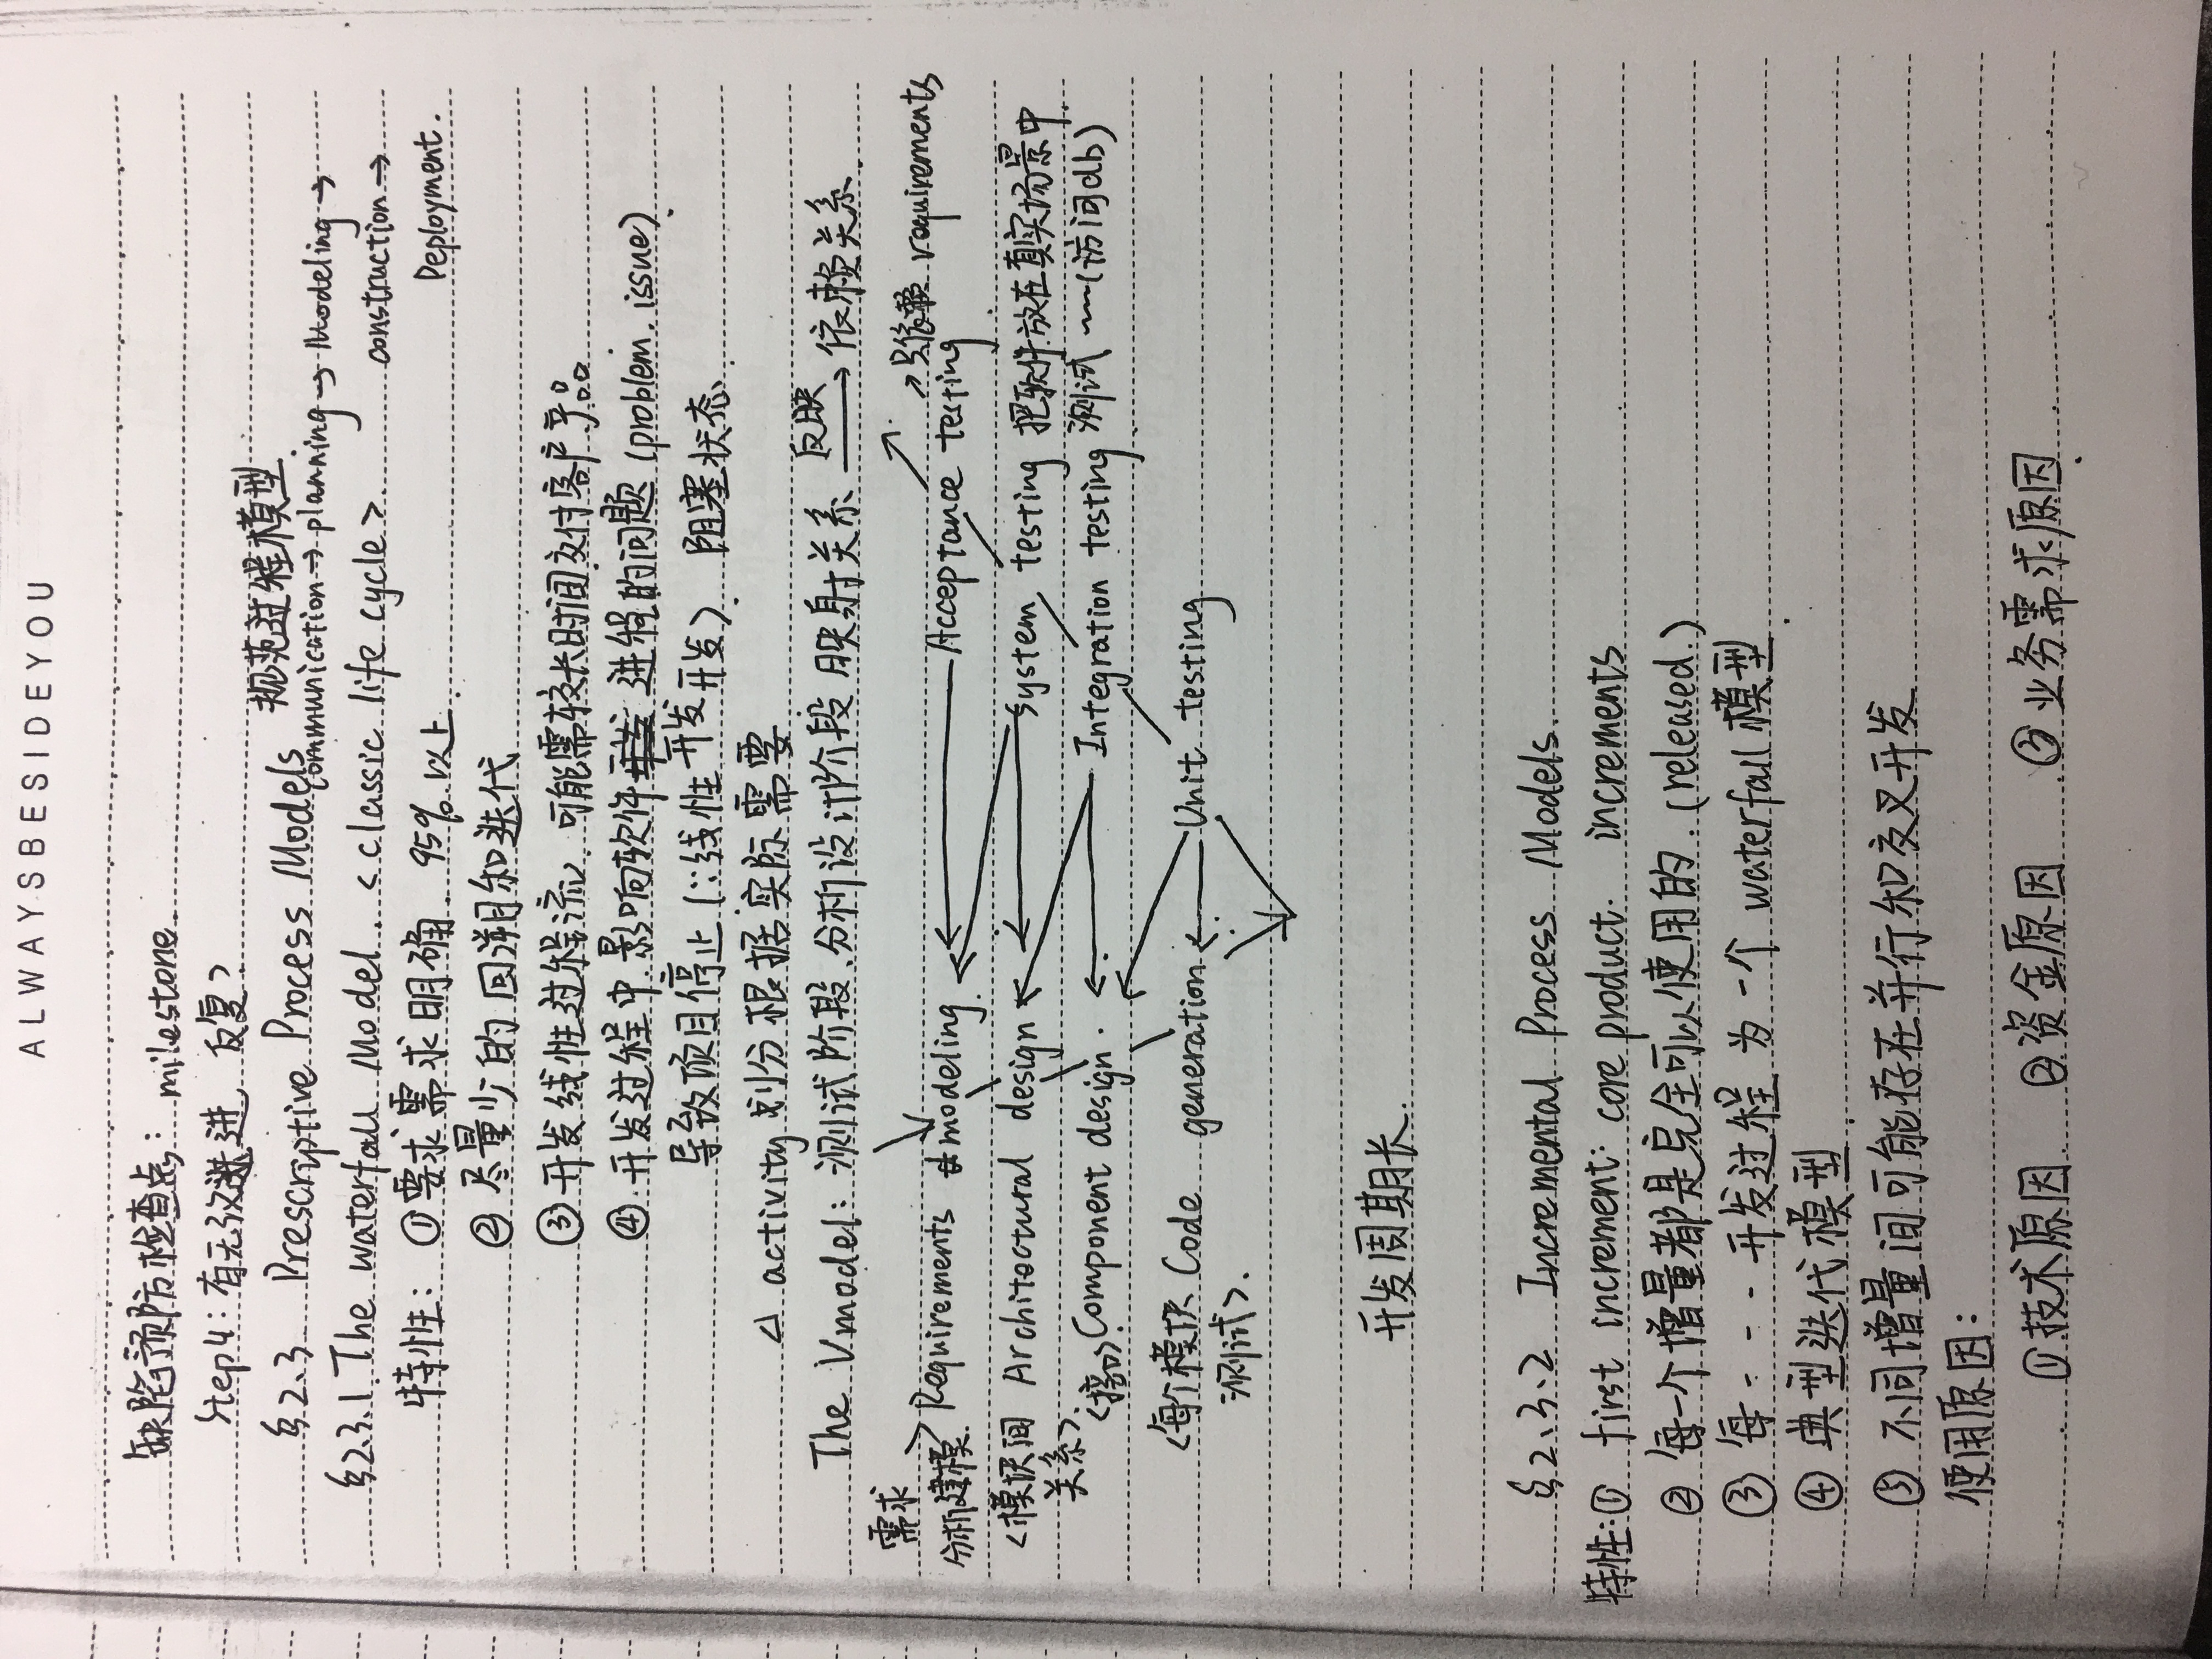 ALWAYSBESIDEYOU
缺陷预防检查点: milestone.
Step4: 有无改进 反复?
§2.3 Prescriptive Process Models 规范过程模型.
communication → planning → Modeling →
§2.3.1. The waterfall Model. <classic life cycle>. construction →
特性: ①要求需求明确. 95%以上. Deployment.
② 尽量少的回溯和迭代
③ 开发线性过程流. 可能需较长时间交付客户产品.
④ 开发过程中影响软件 进程的问题 (problem. issue)
导致项目停止 (∵线性开发开发). 阻塞状态.
△ activity 划分根据实际需要.
The Vmodel: 测试阶段.分析设计阶段 映射关系 反映→ 依赖关系.
需求
分析建模. > Requirements modeling. Acceptance testing. → 只依赖 requirements
<模块间 Architectural design System testing 把软件放在真实场景中
关系>.
<接口>. Component design. Integration testing 测试 ~~(访问db)
<每个模块 Code generation Unit testing
测试>.
开发周期长.
§2.3.2 Incremental Process Models.
特性: ① first increment: core product. increments
② 每一个增量都是完全可以使用的. (released.)
③ 每 - - - 开发过程 为一个 waterfall 模型.
④ 典型迭代模型.
⑤ 不同增量间可能存在并行和交叉开发
使用原因:
①技术原因. ②资金原因 ③业务需求原因.